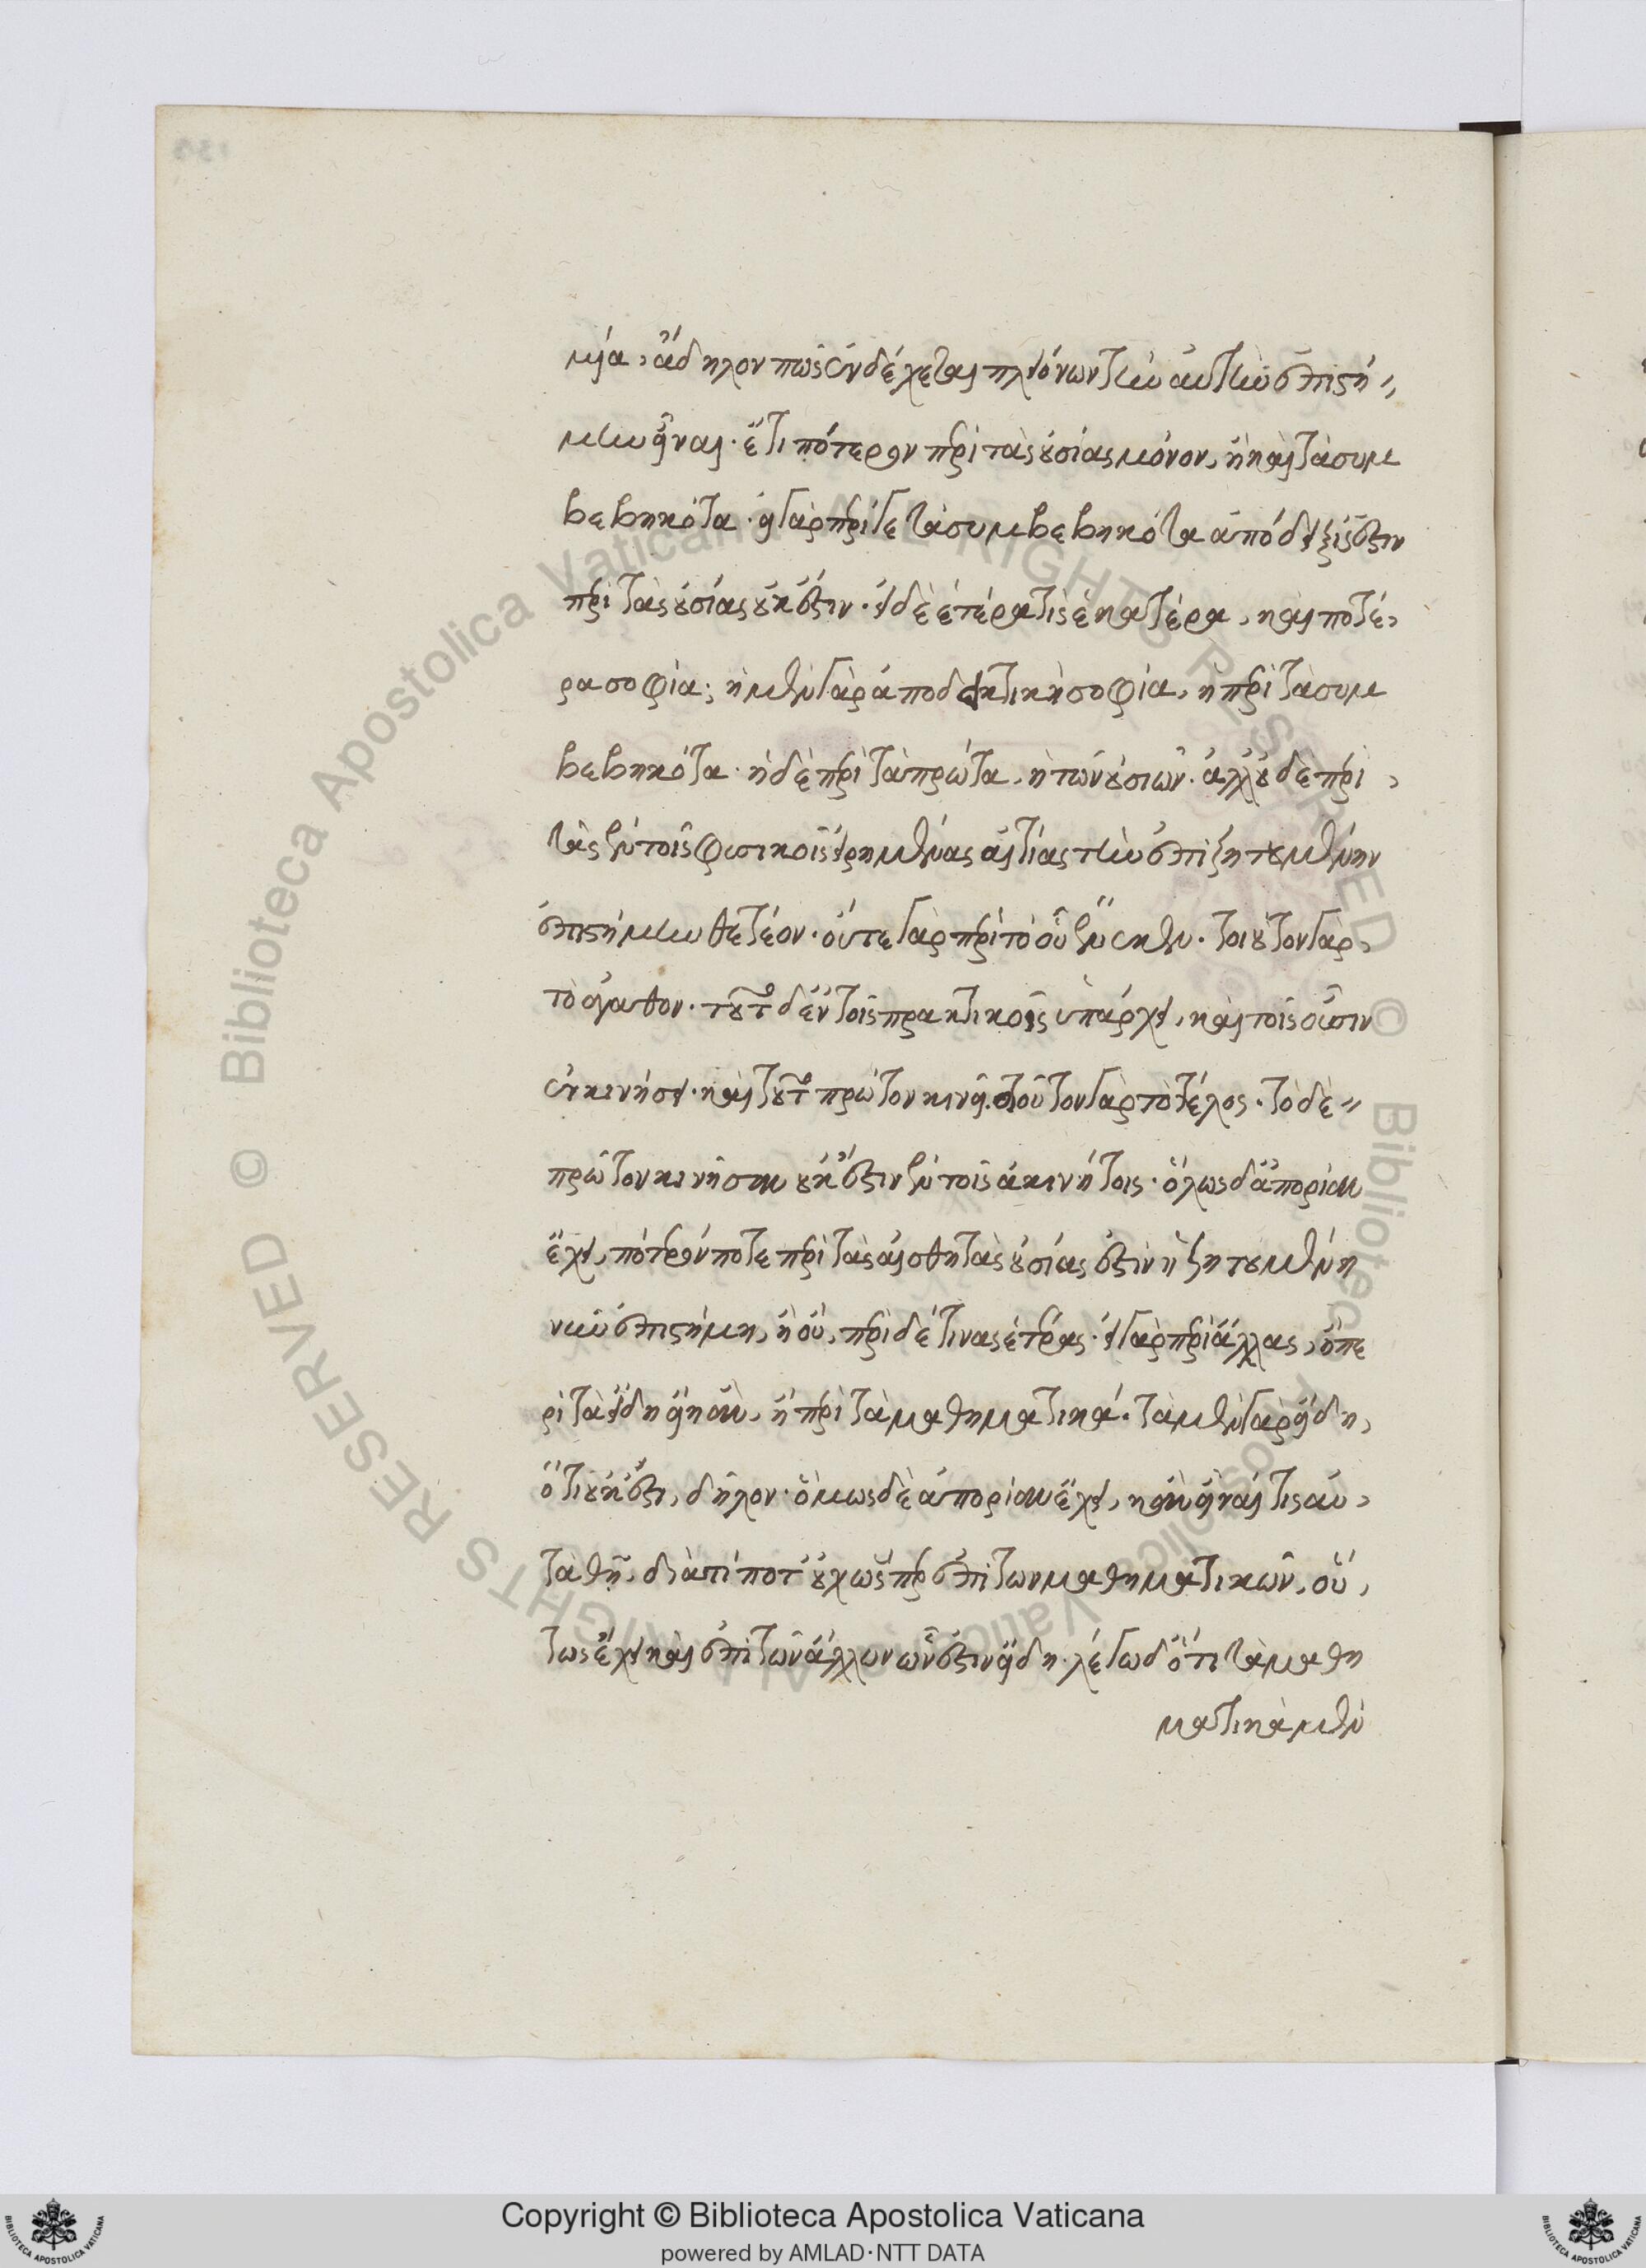 μία, ἄδηλον πῶς ἐνδέχεται πλειόνων τὴν αὐτὴν ἐπιστή
μην εἶναι. ἔτι πότερον περὶ τὰς οὐσίας μόνον, ἢ καὶ τὰ συμ
βεβηκότα. εἰ γὰρ περί γε τὰ συμβεβηκότα ἀπόδειξίς ἐστιν
περὶ τὰς οὐσίας οὐκ ἔστιν. εἰ δὲ ἑτέρα τίς ἑκατέρα, καὶ ποτέ
ρα σοφία; ἡ μὲν γὰρ ἀποδεικτικὴ σοφία, ἡ περὶ τὰ συμ
βεβηκότα. ἡ δὲ περὶ τὰ πρῶτα, ἡ τῶν οὐσιῶν. ἀλλ' οὐδὲ περὶ
τὰς ἐν τοῖς φυσικοῖς εἰρημένας αἰτίας τὴν ἐπιζητουμένην
ἐπιστήμην θετέον. οὔτε γὰρ περὶ τὸ οὗ ἕνεκεν. τοιοῦτον γὰρ
τὸ ἀγαθον. τοῦτο δ' ἐν τοῖς πρακτικοῖς ὑπάρχει, καὶ τοῖς οὖσιν
ἐν κινήσει. καὶ τοῦτο πρῶτον κινεῖ. τοιοῦτον γὰρ τὸ τέλος. τὸ δὲ
πρῶτον κινῆσαν οὐκ ἔστιν ἐν τοῖς ἀκινήτοις. ὅλως δ' ἀπορίαν
ἔχει, πότερόν ποτε περὶ τὰς αἰσθητὰς οὐσίας ἐστὶν ἡ ζητουμένη
νῦν ἐπιστήμη, ἢ οὔ, περὶ δέ τινας ἑτέρας. εἰ γὰρ περὶ ἄλλας, ἢ πε
ρὶ τὰ εἴδη εἴη ἂν, ἢ περὶ τὰ μαθηματικά. τὰ μὲν γὰρ εἴδη,
ὅτι οὐκ ἔστι, δῆλον. ὅμως δὲ ἀπορίαν ἔχει, κἂν εἶναί τις αὐ
τὰ θῇ, διὰ τί ποτ' οὐχ ὥσπερ ἐπὶ τῶν μαθηματικῶν, οὕ
τως ἔχει καὶ ἐπὶ τῶν ἄλλων ὧν ἐστιν εἴδη. λέγω δ' ὅτι τὰ μαθη
ματικὰ μὲν
Copyright © Biblioteca Apostolica Vaticana
powered by AMLAD·NTT DATA